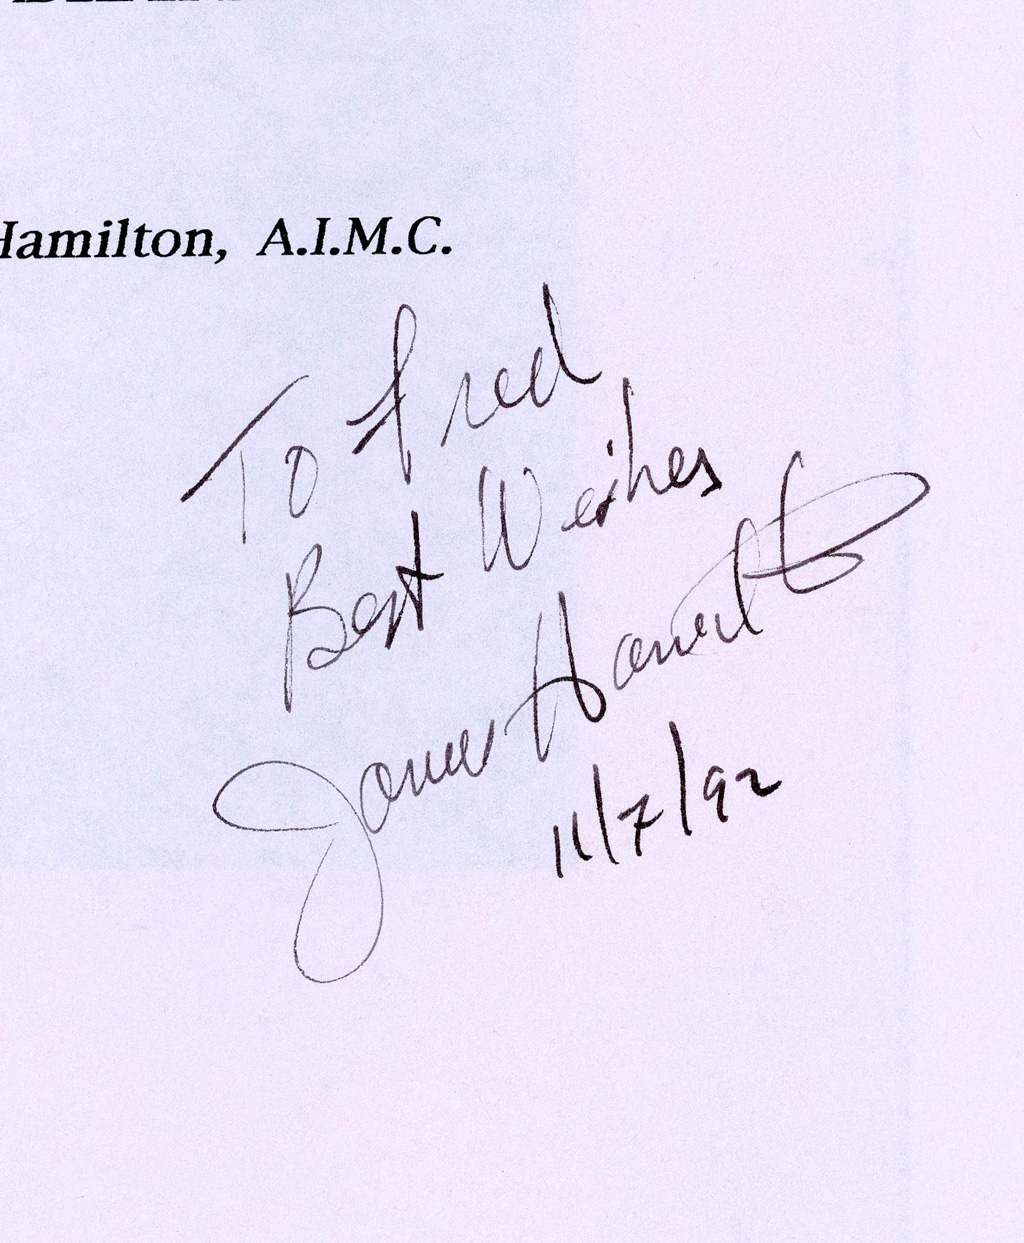 Hamilton, A.I.M.C.
To Fred
Best Wishes
James Hamilton
11/7/92